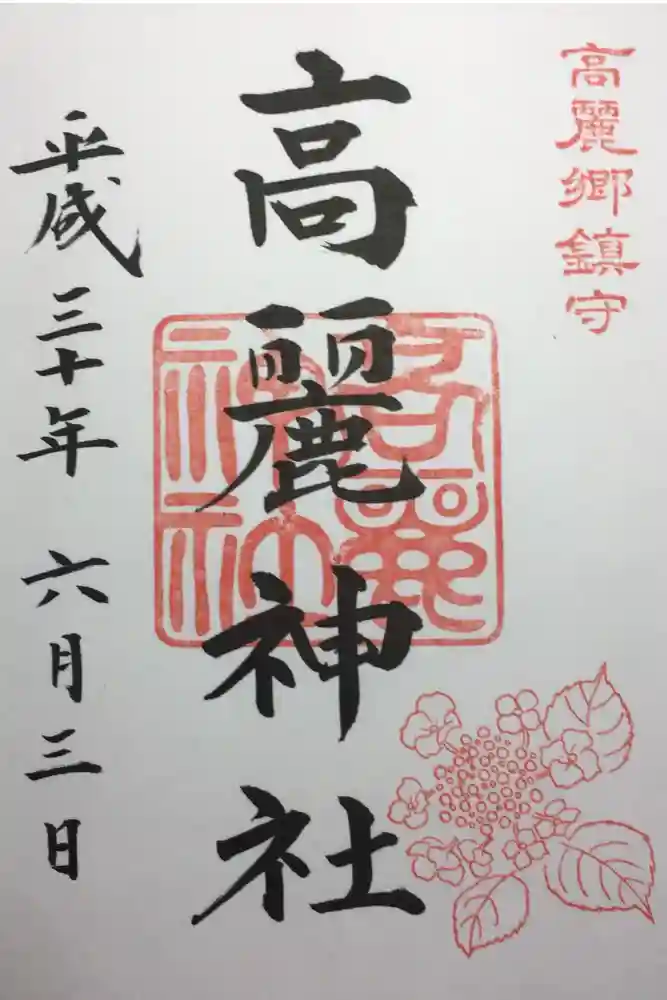 高麗郷鎮守
高麗神社
高麗神社
平成三十年 六月三日